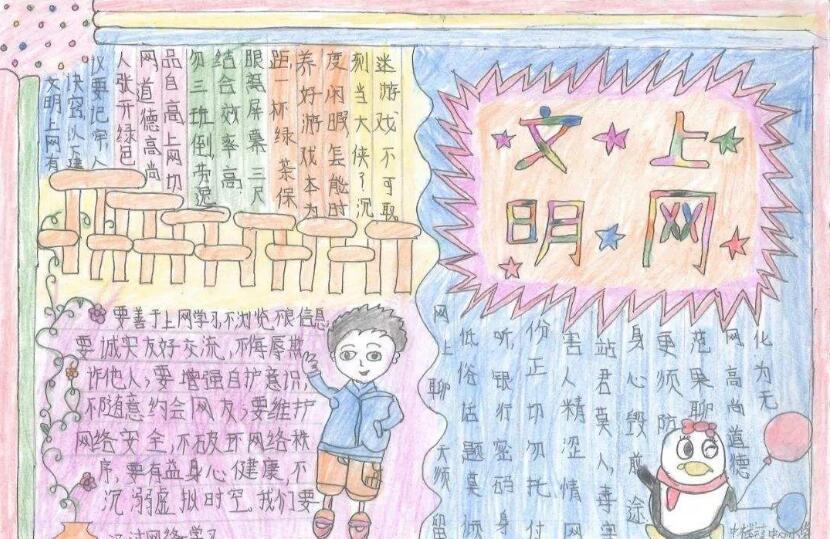 文明
上网
文明上网有
诀窍以下建
议要记牢人
人张开绿色
网道德高尚
品自高上网切
勿三班倒劳逸
结合效率高
眼离屏幕三尺
距一杯绿茶保
养好游戏本为
度闲暇怎能时
刻当大侠了沉
迷游戏不可取
要善于上网学习,不浏览不良信息
要诚实友好交流,不侮辱欺
诈他人;要增强自护意识,
不随意约会网友;要维护
网络安全,不破坏网络秩
序,要有益身心健康,不
沉溺虚拟时空。我们要
网络学习
网上聊天须留
低俗话题莫须
听银行密码身
份正切勿托付
害人精涩情网
站君莫入毒害
身心毁前途
更须防
范聊
网高尚道德
化为无